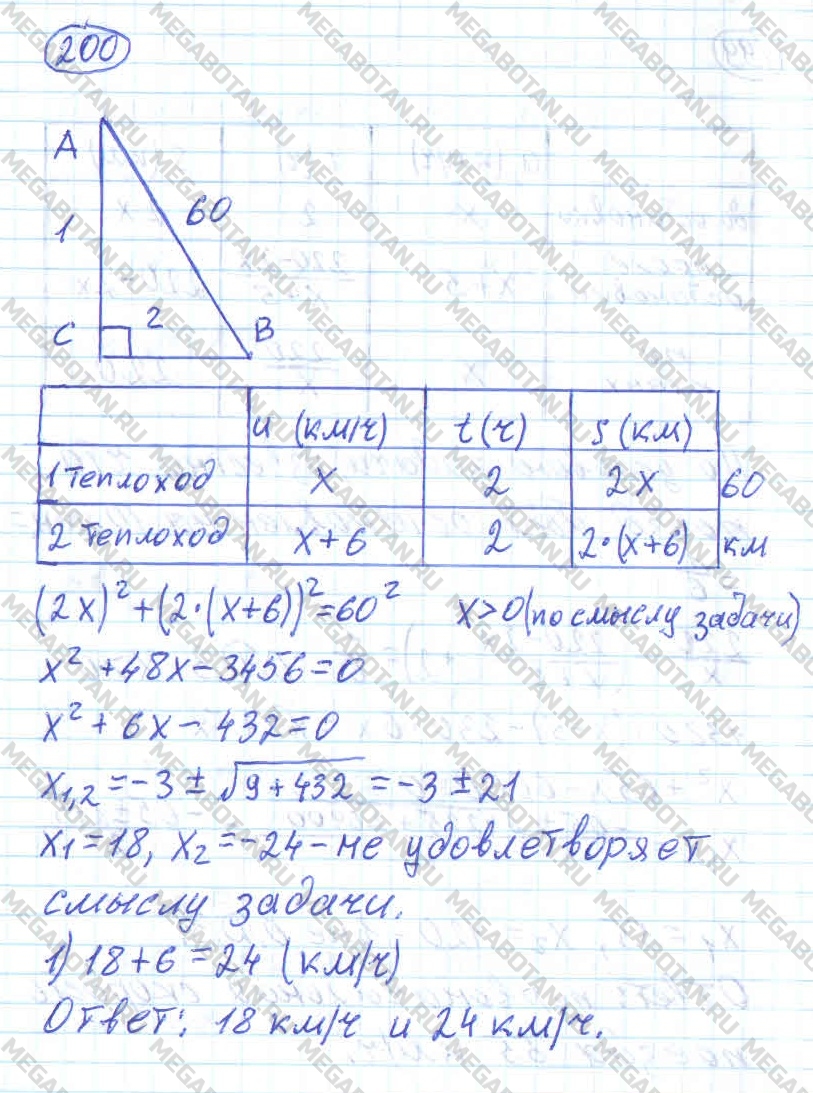 200
A
60
1
2
C B
u (км/ч) t(ч) s(км)
1 теплоход x 2 2x 60
2 теплоход x+6 2 2·(x+6) км
(2x)²+(2·(x+6))²=60² x>0(по смыслу задачи)
x²+48x-3456=0
x²+6x-432=0
x₁,₂=-3±√9+432=-3±21
x₁=18, x₂=-24-не удовлетворяет
смыслу задачи.
1) 18+6=24 (км/ч)
Ответ: 18 км/ч и 24 км/ч.
MEGABOTAN.RU